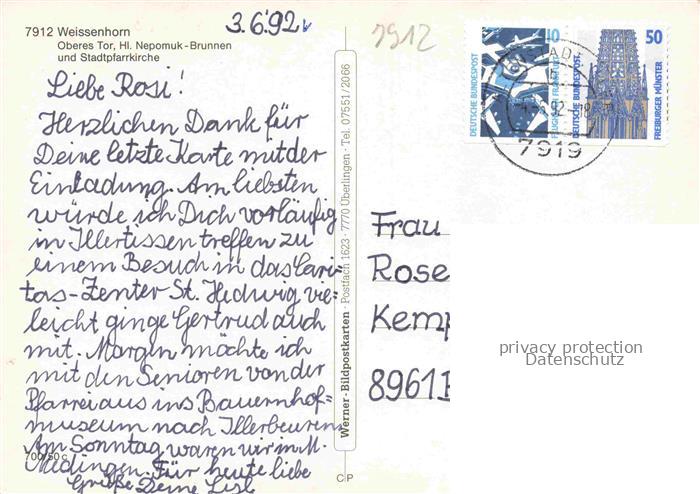 7912 Weissenhorn
Oberes Tor, Hl. Nepomuk-Brunnen
und Stadtpfarrkirche
3.6.92
7912
Liebe Rosi!
Herzlichen Dank für
Deine letzte Karte mit der
Einladung. Am liebsten
würde ich Dich vorläufig
in Illertissen treffen zu
einem Besuch in das Cari-
tas-Zenter St. Hedwig vie-
leicht ginge Gertrud auch
mit. Morgen möchte ich
mit den Senioren von der
Pfarrei aus ins Bauernhof=
museum nach Illerbeuren.
Am Sonntag waren wir in M.
Medingen. Für heute liebe
Grüße Deine Lisl
700/50 c
Werner-Bildpostkarten · Postfach 1623 · 7770 Überlingen · Tel. 07551/2066
C P
10
DEUTSCHE BUNDESPOST
50
DEUTSCHE BUNDESPOST
FREIBURGER MÜNSTER
7919
Frau
Rose
Kemp
8961
privacy protection
Datenschutz